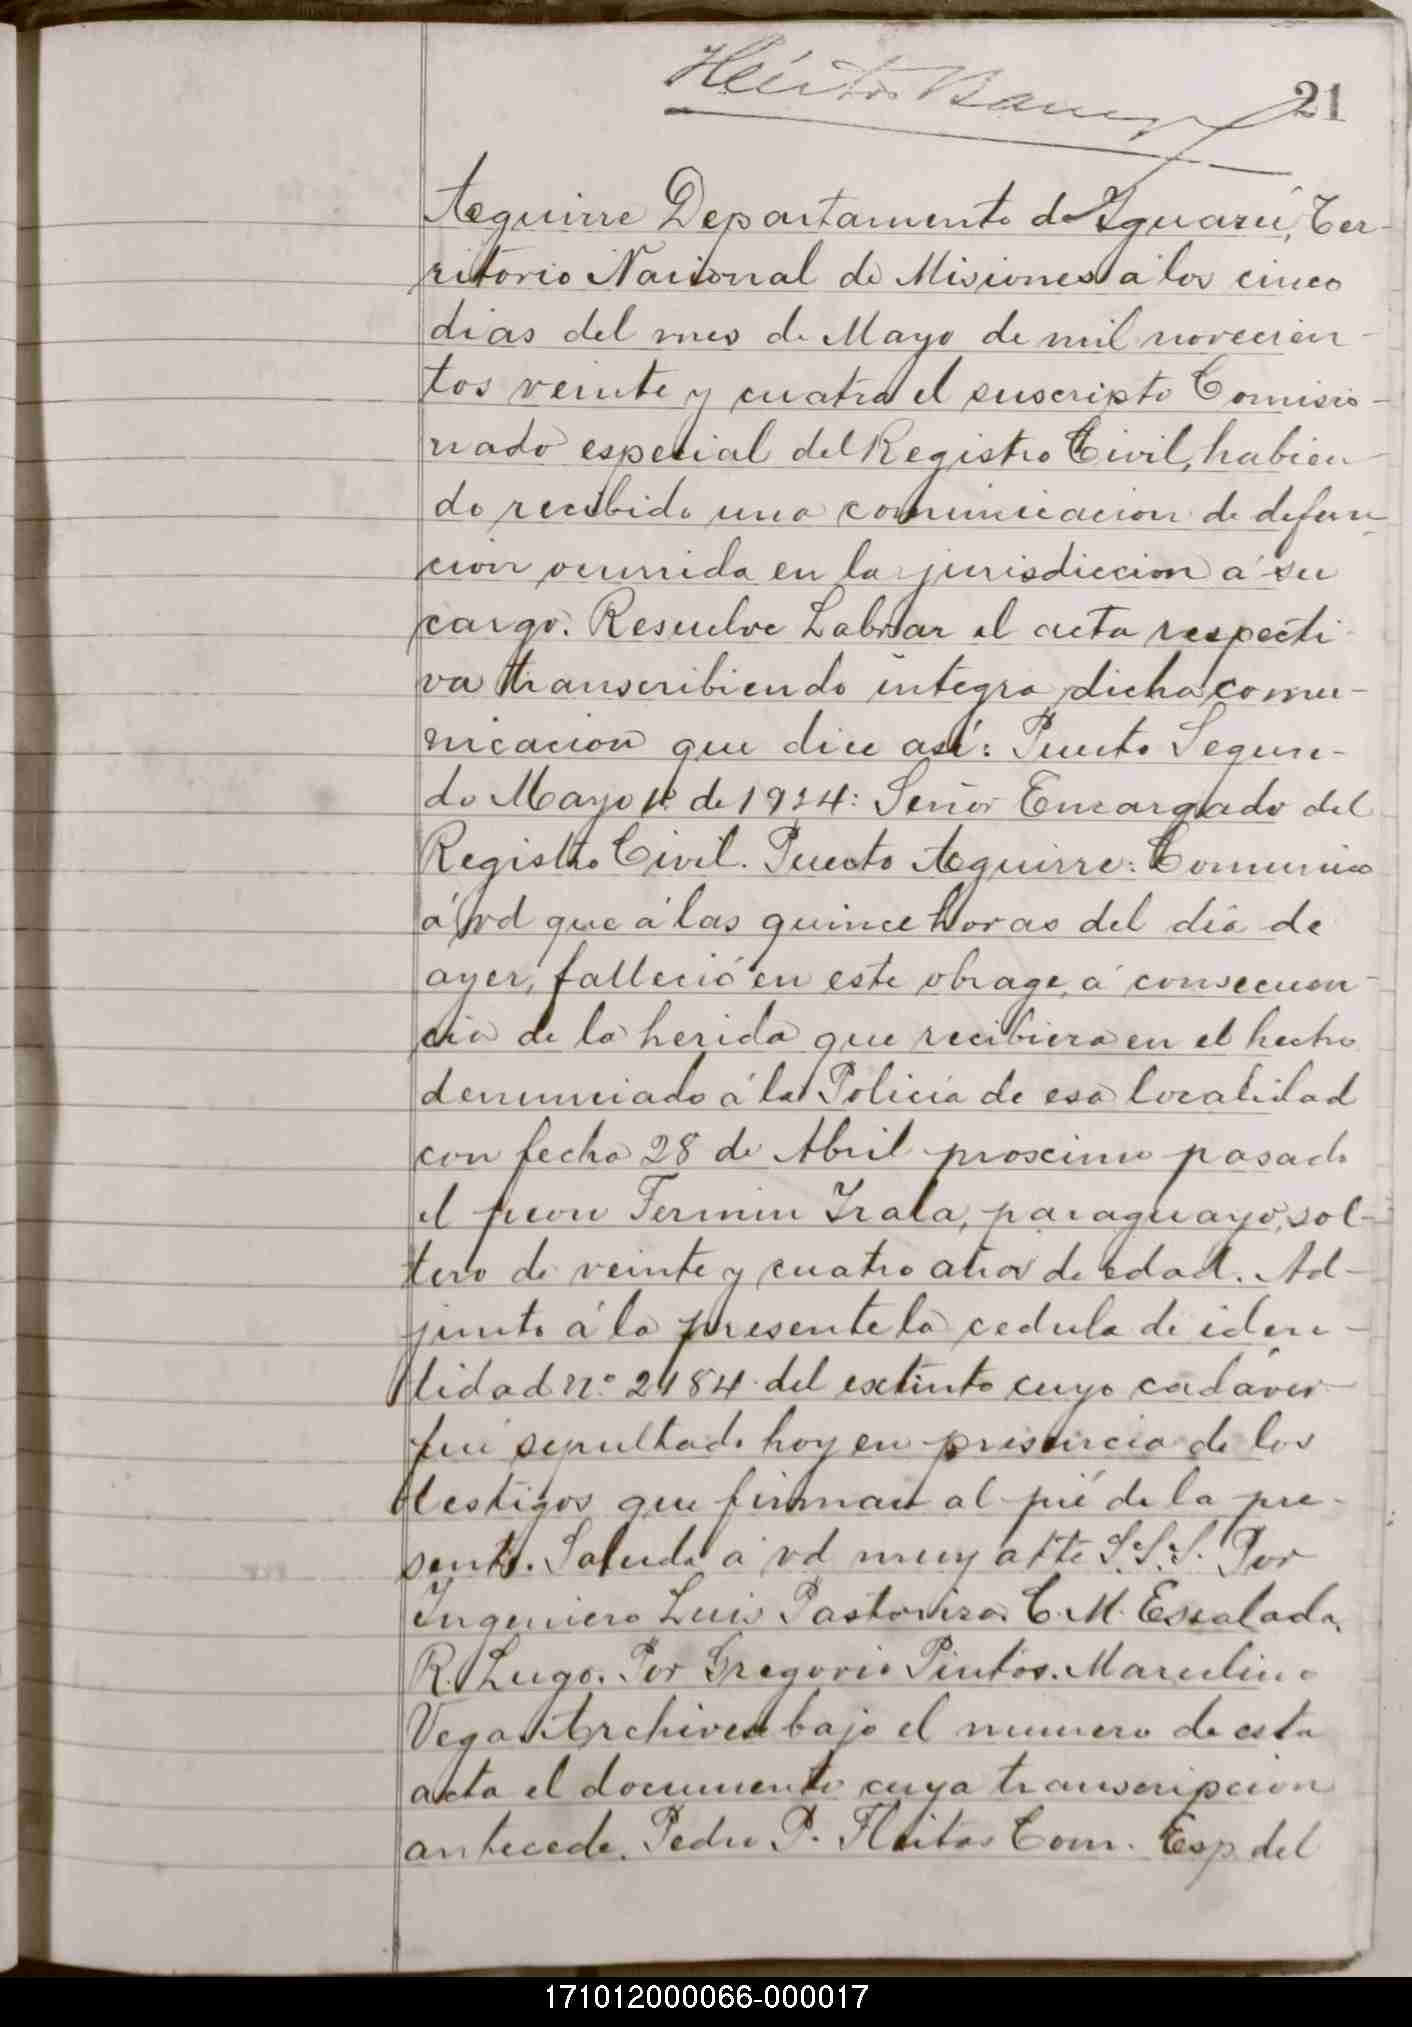 Héctor Barre
21
Aguirre Departamento de Iguazú, Ter-
ritorio Nacional de Misiones a los cinco
dias del mes de Mayo de mil novecien-
tos veinte y cuatro el suscripto Comisio-
nado especial del Registro Civil, habien-
do recibido una comunicacion de defun-
cion ocurrida en la jurisdiccion á su
cargo. Resuelve Labrar el acta respecti-
va transcribiendo integra dicha comu-
nicacion que dice así: Puerto Segun-
do Mayo 1º de 1924: Señor Encargado del
Registro Civil. Puerto Aguirre: Comunico
á vd que á las quince horas del dia de
ayer, falleció en este obrage, á consecuen-
cia de la herida que recibiera en el hecho
denunciado á la Policia de esa localidad
con fecha 28 de Abril proximo pasado
el peon Fermin Irala, paraguayo, sol-
tero de veinte y cuatro años de edad. Ad-
junto á la presente la cedula de iden-
tidad nº 2184 del extinto cuyo cadáver
fué sepultado hoy en presencia de los
testigos que firman al pié de la pre-
sente. Saluda á vd muy atte S.S.S. Por
Ingeniero Luis Pastoriza. C. M. Escalada.
R. Lugo. Por Gregorio Pintos. Marcelino
Vega. Archivese bajo el numero de esta
acta el documento cuya transcripcion
antecede. Pedro P. Fleitas Com. Esp. del
171012000066-000017